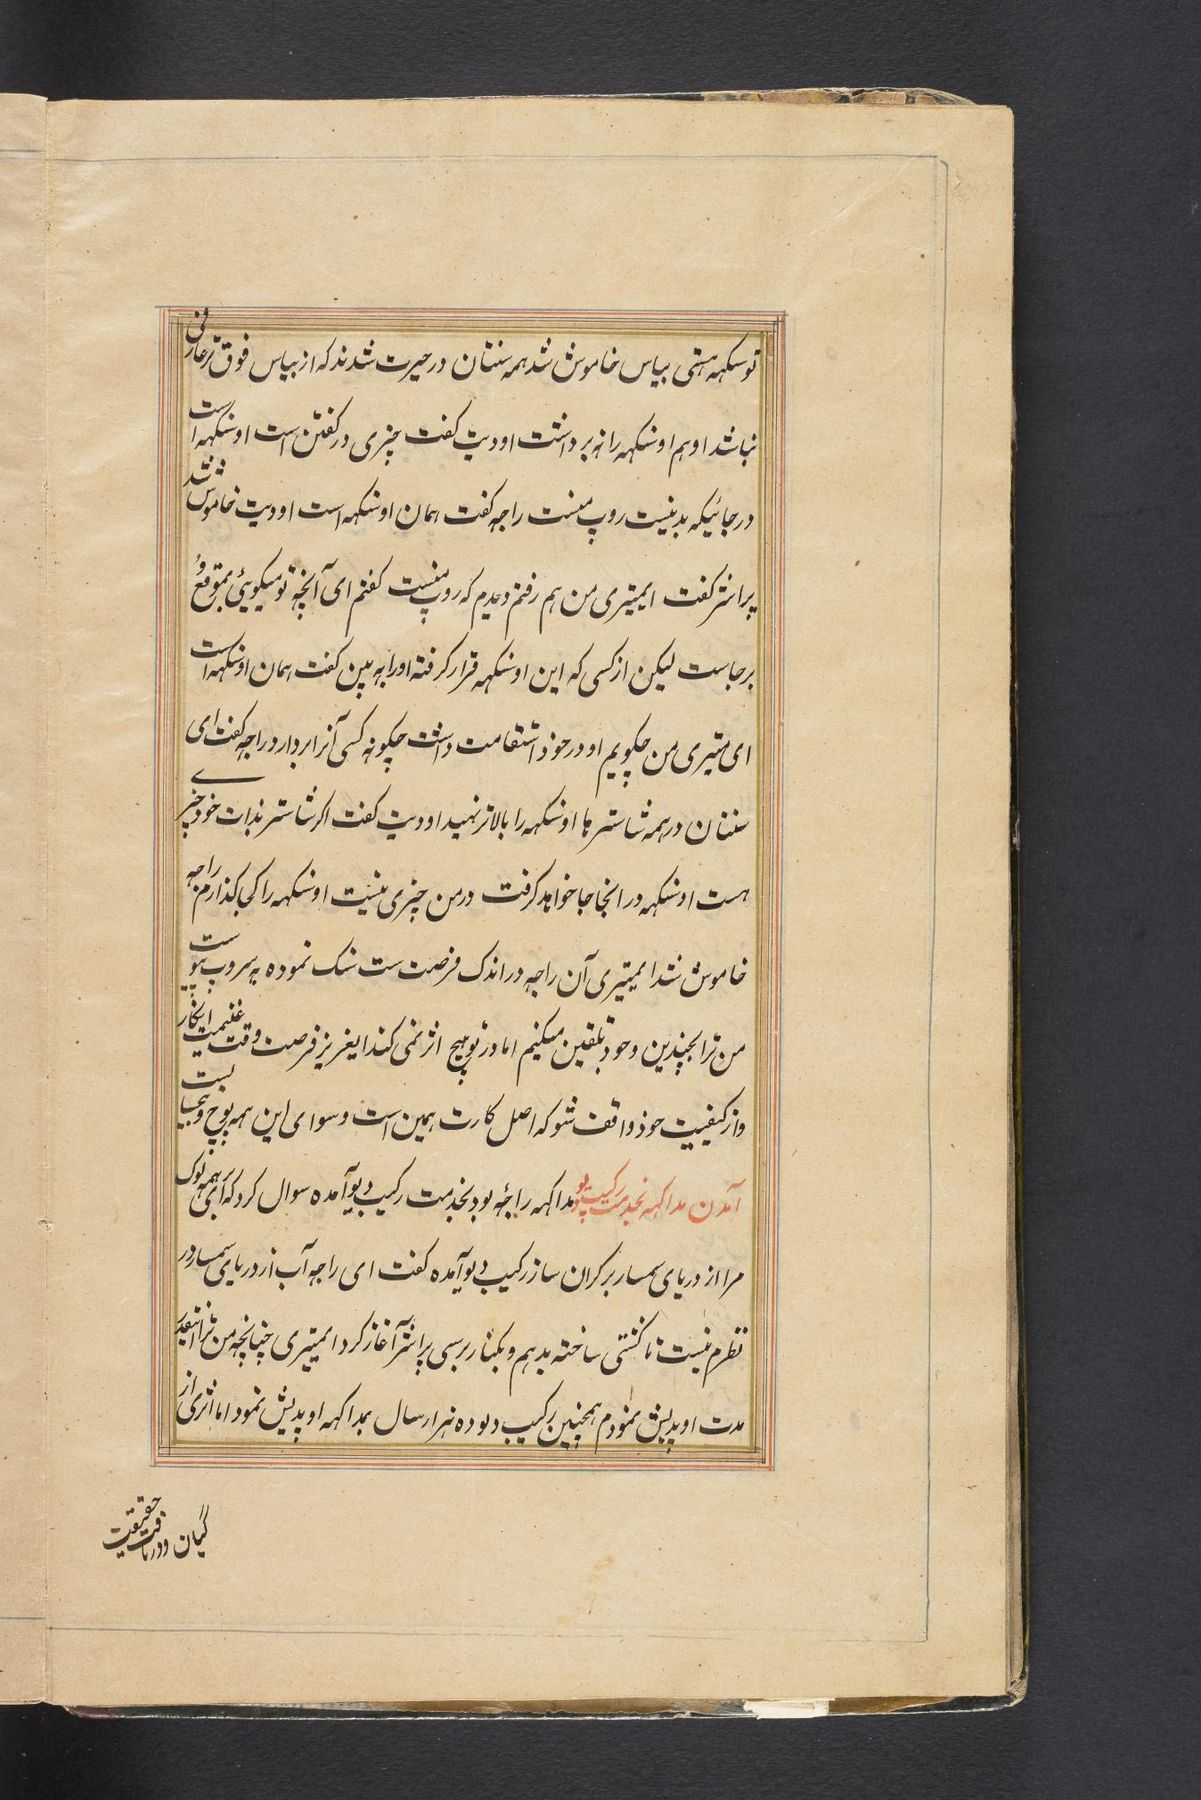 توسکهه هستی بیاس خاموش شد همه سنتان در حیرت شدند که از بیاس فوق تر عارفی
نباشد او هم اوسکهه را نه برداشت اودیت گفت چیزی در گفتن است اوسکهه است
در جائیکه بدنیست روپ منست راجه گفت همان اوسکهه است اودیت خاموش شد
پراشر گفت ایمیتری من هم رفتم دیدم که روپ منست گفتم ای آنچه تو میگوئی بموقع و
برجاست لیکن از کسی که این اوسکهه قرار گرفته اورا به بین گفت همان اوسکهه است
ای میتری من چگویم او در خود استقامت داشت چگونه کسی آنرا بردارد راجه گفت ای
سنتان در همه شاسترها اوسکهه را بالاتر نهید اودیت گفت اگر شاستر بذات خود چیزی
هست اوسکهه در انجا جا خواهد گرفت در من چیزی نیست اوسکهه را کی گذارم راجه
خاموش شد ایمیتری آن راجه در اندک فرصت ست سنک نموده به سروپ پیوست
من ترا بچندین وجود تلقین میکنم اما در تو هیچ اثر نمی کند ایعزیز فرصت وقت غنیمت انگار
و از کیفیت خود واقف شو که اصل کارت همین است و سوای این همه پوچ و بیجاست
آمدن مداکهه بخدمت رکیب دیو مداکهه راجهٔ بود بخدمت رکیب دیو آمده سوال کرد که ای برهمه لوک
مرا از دریای سمسار بر کران ساز رکیب دیو آمده گفت ای راجه آب از دریای سمسار در
نظرم نیست تا کشتی ساخته بدهم و بکنار برسی پراشر آغاز کرد ایمیتری چنانچه من ترا اینقدر
مدت اوپدیش نمودم همچنین رکیب دیو ده هزار سال بمداکهه اوپدیش نمود اما اثری از
گیان و دریافت حقیقت